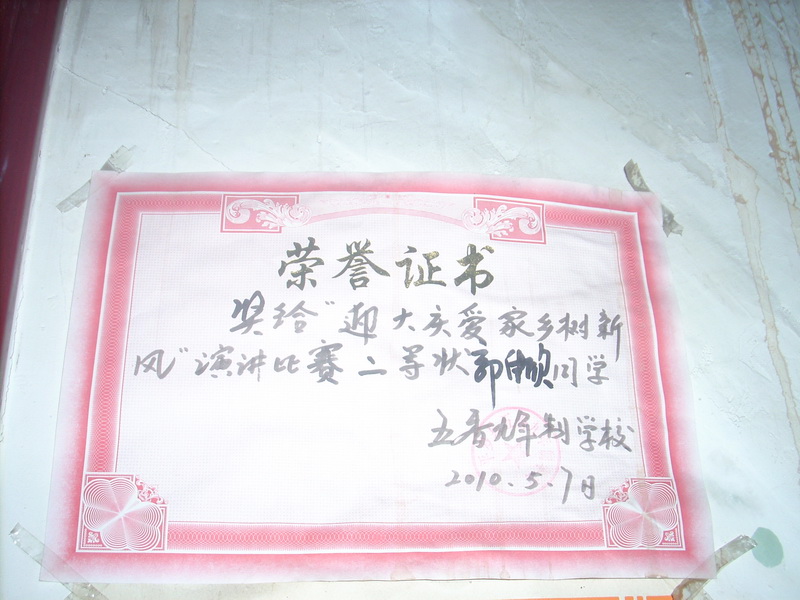 荣誉证书
奖给"迎大庆爱家乡树新
风"演讲比赛二等状郭同学
五香九年制学校
2010.5.7日